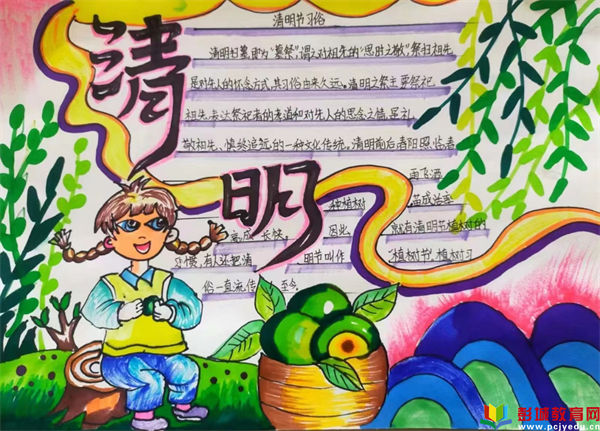 清明
清明节习俗
清明扫墓,即为“墓祭”,谓之对祖先的“思时之敬”祭扫祖先
是对先人的怀念方式,其习俗由来久远。清明之祭主要祭祀
祖先,表达祭祀者的孝道和对先人的思念之情,是礼
敬祖先、慎终追远的一种文化传统。清明前后,春阳照临,春
雨飞洒
种植树苗成活
高,成长快。因此,就有清明节植树的
习惯,有人还把清明节叫作“植树节”。植树习
俗一直流传至今
彭城教育网
www.pcjyedu.cn